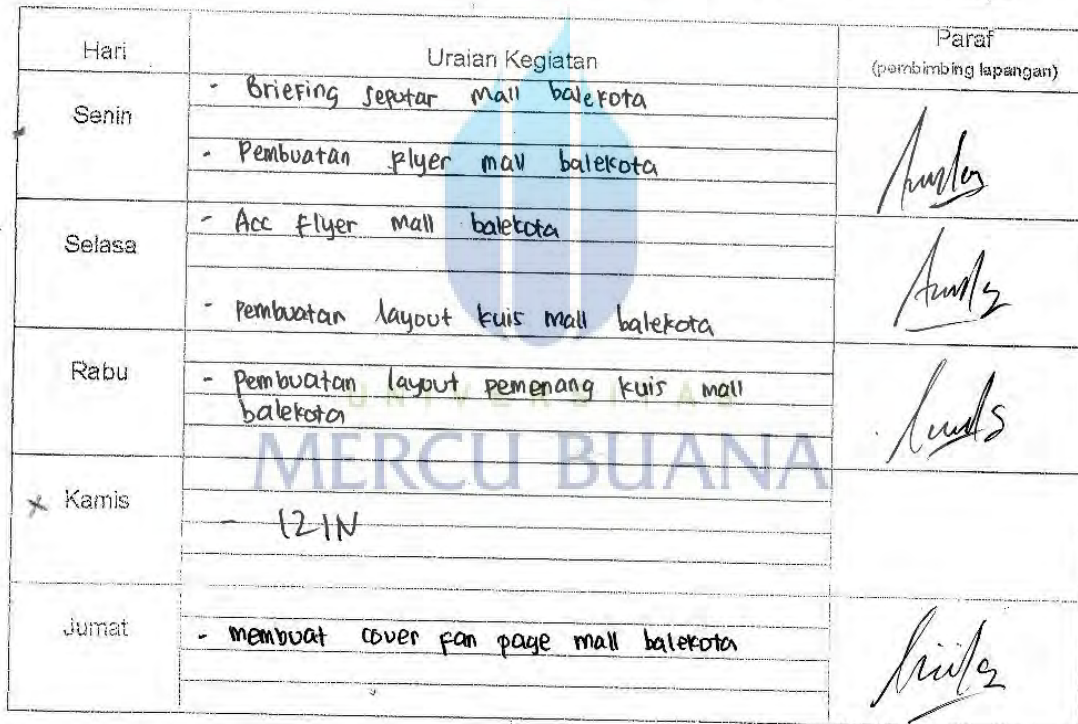 Hari
Uraian Kegiatan
Paraf
(pembimbing lapangan)
Senin
- Briefing seputar mall balekota
- Pembuatan flyer mall balekota
Selasa
- Acc flyer mall balekota
- pembuatan layout kuis mall balekota
Rabu
- pembuatan layout pemenang kuis mall
balekota
UNIVERSITAS
MERCU BUANA
Kamis
- IZIN
Jumat
- membuat cover fan page mall balekota